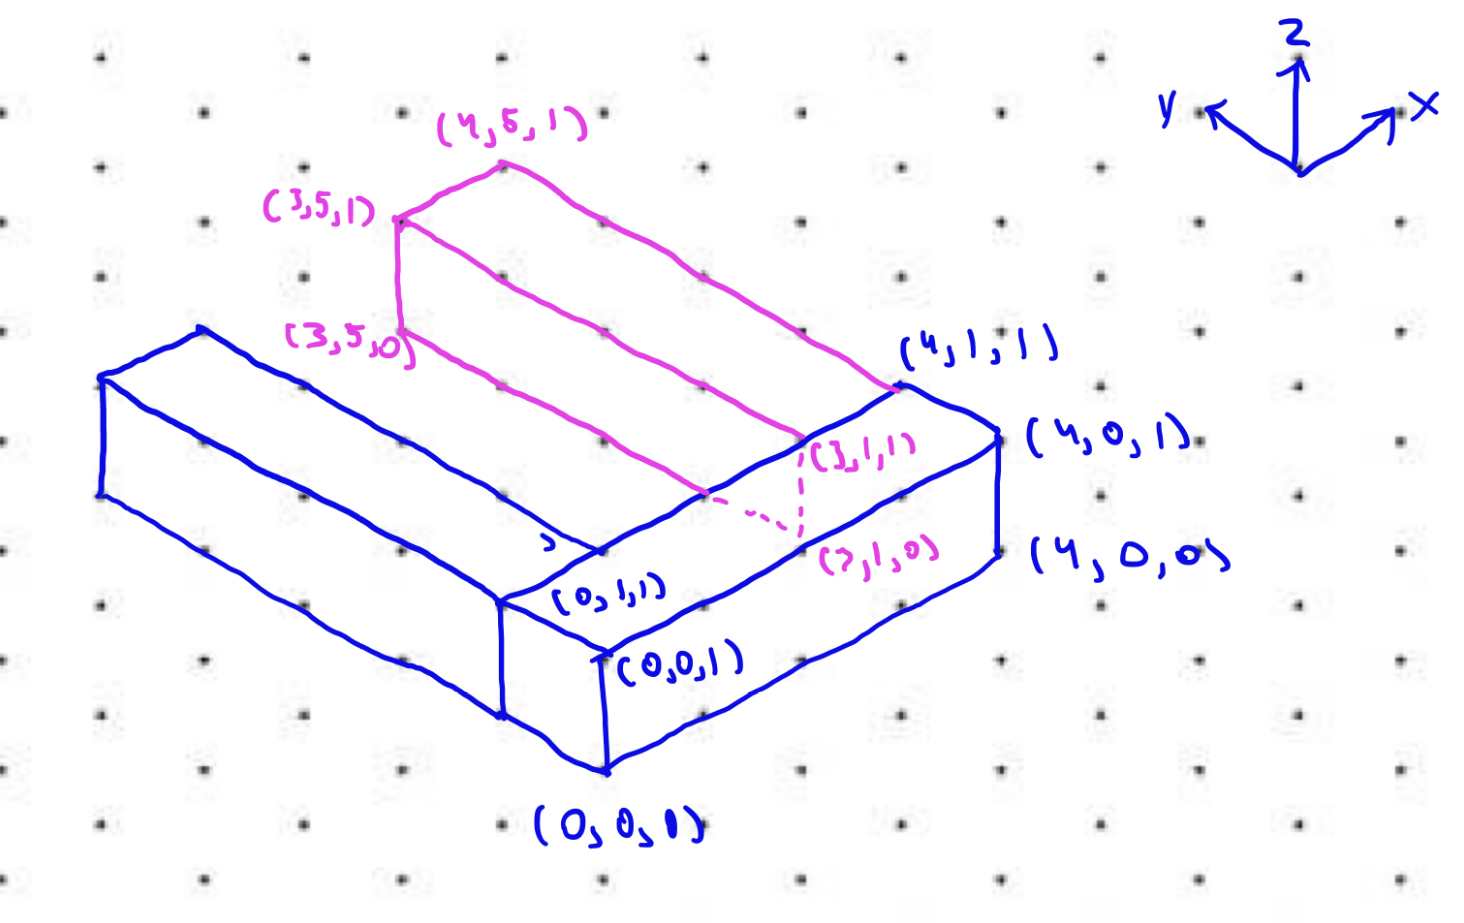 z
y x
(4,5,1)
(3,5,1)
(3,5,0)
(4,1,1)
(4,0,1)
(3,1,1)
(4,0,0)
(3,1,0)
(0,1,1)
(0,0,1)
(0,0,0)